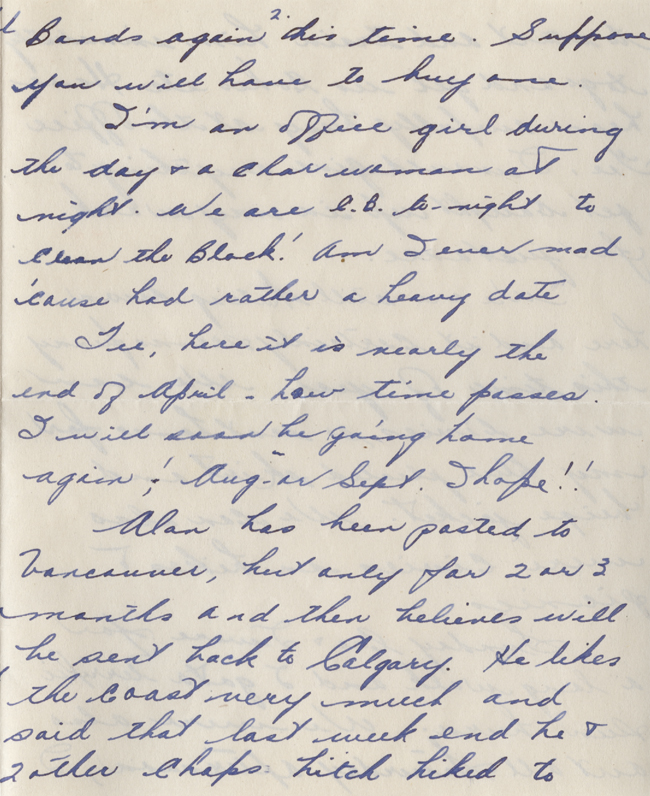 2.
Bonds again this time. Suppose
you will have to buy one.
I'm an office girl during
the day & a char woman at
night. We are C.B. to-night to
clean the Block! Am I ever mad
'cause had rather a heavy date
Gee, here it is nearly the
end of April - how time passes.
I will soon be going home
again! Aug - or Sept. I hope!!
Alan has been posted to
Vancouver, but only for 2 or 3
months and then believes will
be sent back to Calgary. He likes
the coast very much and
said that last week end he &
2 other chaps hitch hiked to